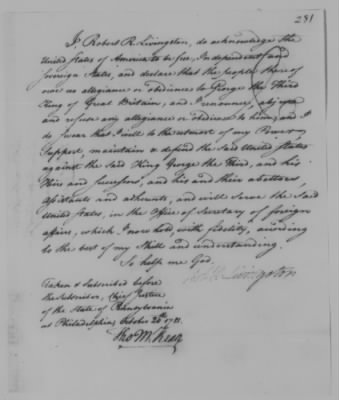 281
I, Robert R. Livingston, do acknowledge the
United States of America to be free, Independent and
sovereign States, and declare that the people thereof
owe no allegiance or obedience to George the Third
King of Great Britain; and I renounce, abjure
and refuse any allegiance or obedience to him; and I
do swear that I will to the utmost of my Power,
Support, maintain & defend the said United States
against the said King George the Third, and his
Heirs and Successors, and his and their abettors,
Assistants and adherents, and will serve the said
United States, in the Office of Secretary of foreign
affairs, which I now hold, with fidelity, according
to the best of my Skill and understanding.
So help me God.
Rob R Livingston
Taken & Subscribed before
the Subscriber, Chief Justice
of the State of Pennsylvania
at Philadelphia, October 20th 1781.
Tho M:Kean